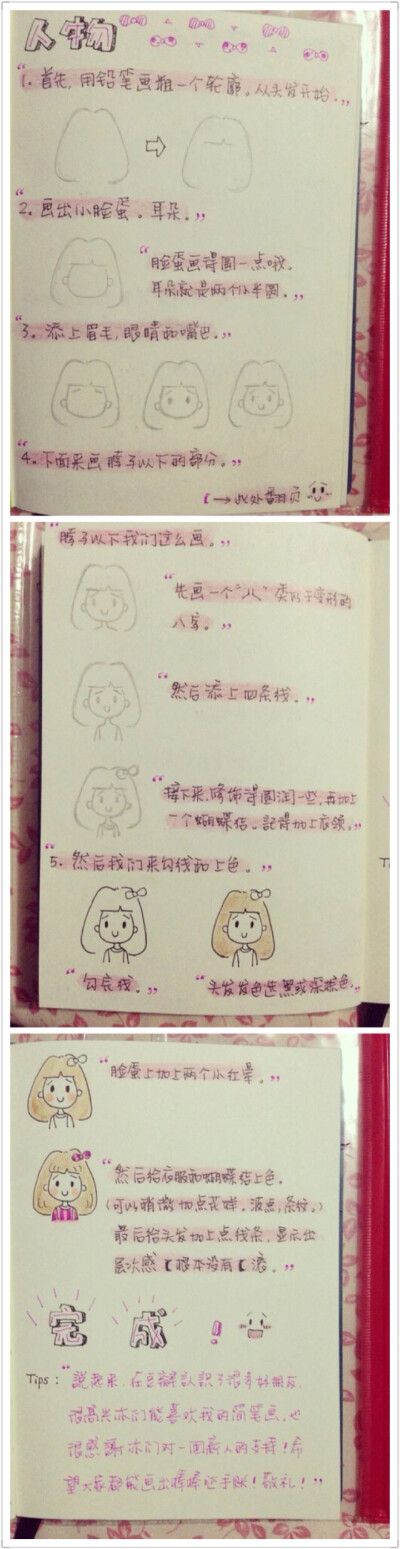 人物
“1. 首先, 用铅笔画粗一个轮廓。从头发开始.”
“2. 画出小脸蛋。耳朵。”
“脸蛋画得圆一点哦。
耳朵就是两个小半圆。”
“3. 添上眉毛, 眼睛和嘴巴。”
“4. 下面来画脖子以下的部分。”
(→此处翻页
脖子以下我们这么画。”
“先画一个“八” 类似于变形的
八字。”
“然后添上四条线。”
“接下来, 修饰得圆润一些, 再加上
一个蝴蝶结。記得加上衣领。”
“5. 然后我们来勾线和上色。”
“勾底线。”
“头发发色选黑或深棕色。”
“脸蛋上加上两个小红晕。”
“然后给衣服和蝴蝶结上色。
(可以稍微加点花样。波点, 条纹。)
最后给头发加上点线条, 显示出
层次感【根本没有【滚。”
完成!
Tips: “說起来, 在豆瓣认识了很多好朋友,
很高兴你们能喜欢我的简笔画, 也
很感謝你们对一個新人的支持! 希
望大家都能画出棒棒的手账! 敬礼!”